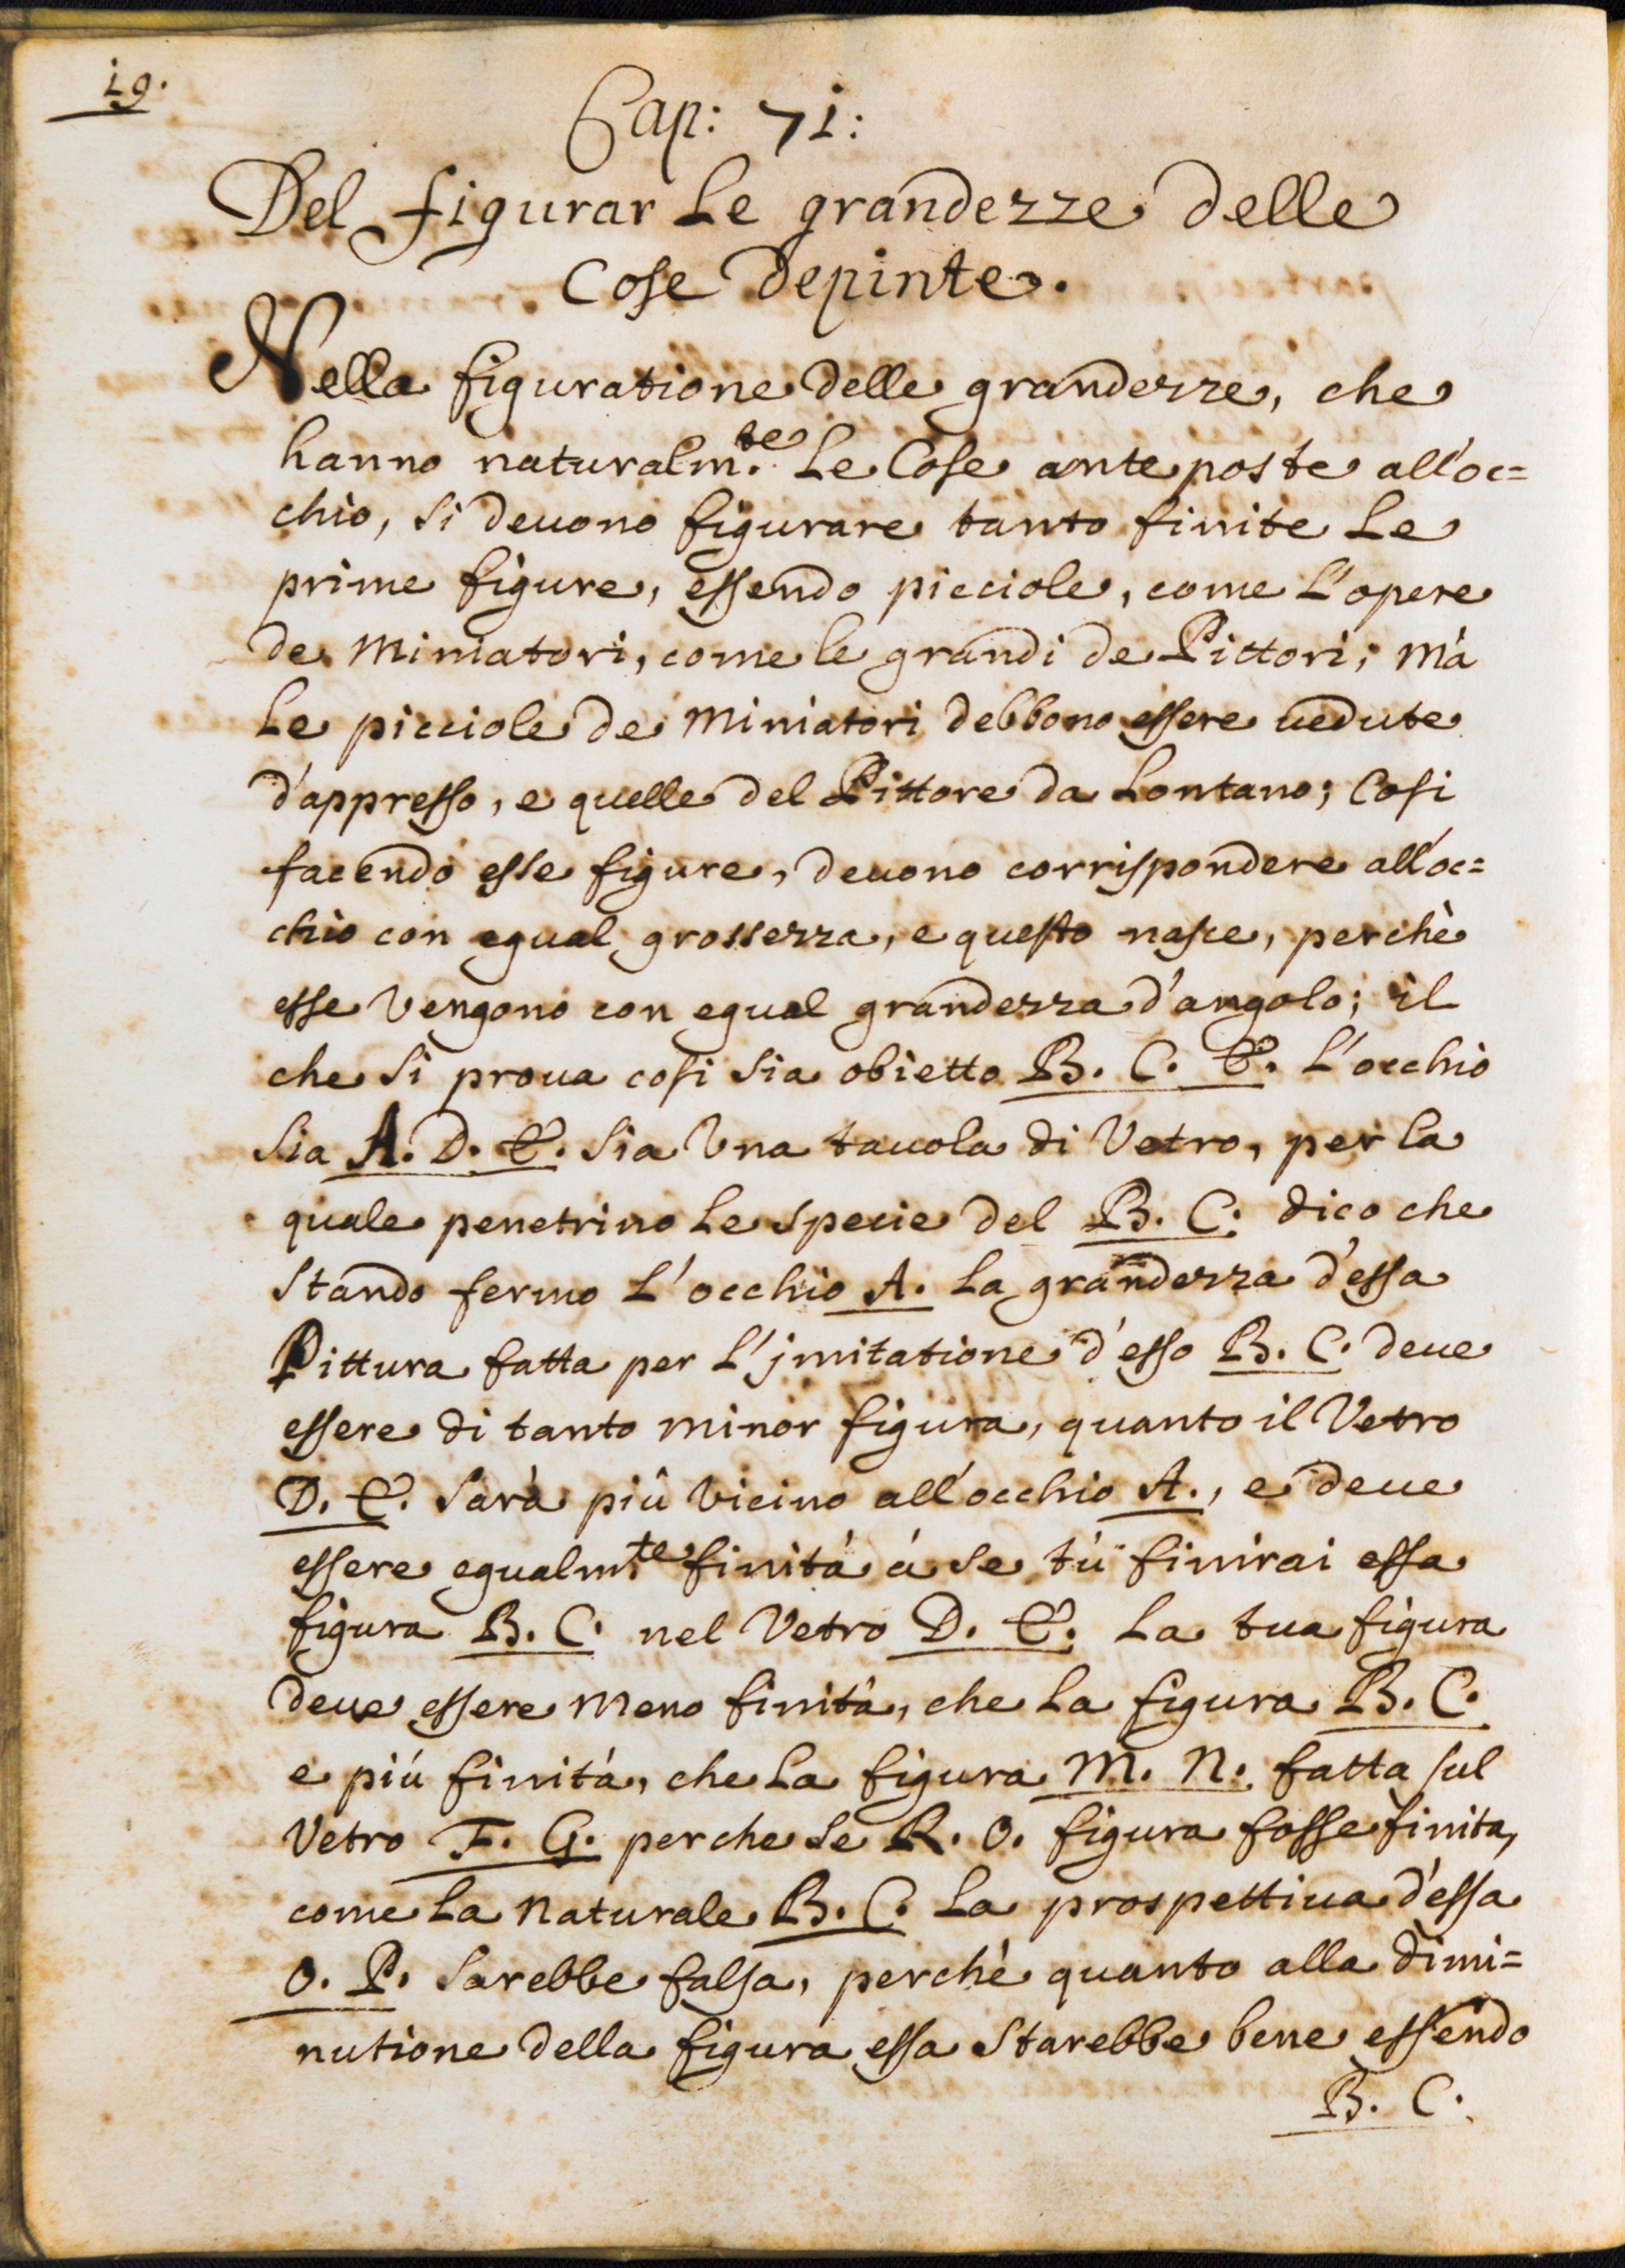 19.
Cap: 71:
Del figurar Le grandezze delle
Cose depinte.
Nella figuratione delle grandezze, che
hanno naturalm.te Le Cose ante poste all'oc=
chio, si deuono figurare tanto finite Le
prime figure, essendo picciole, come L'opere
de Miniatori, come le grandi de Pittori; mà
Le picciole de Miniatori debbono essere uedute
d'appresso, e quelle del Pittore da Lontano; Cosi
facendo esse figure, deuono corrispondere all'oc=
chio con egual grossezza, e questo nasce, perchè
esse Vengono con egual grandezza d'angolo; il
che si proua cosi sia obietto B. C. E. L'occhio
sia A. D. E. sia Vna tauola di Vetro, per la
quale penetrino Le specie del B. C: dico che
stando fermo L'occhio A. La grandezza d'essa
Pittura fatta per L'jmitatione d'esso B. C. deue
essere di tanto minor figura, quanto il Vetro
D. E. sarà più Vicino all'occhio A., e deue
essere egualm.te finità à se tù finirai essa
figura B. C. nel Vetro D. E. La tua figura
deue essere meno finità, che La figura B. C.
e più finità, che La figura M. N. fatta sul
Vetro F. G. perche se R. O. figura fosse finita,
come La Naturale B. C. La prospettiua d'essa
O. P. sarebbe falsa, perchè quanto alla dimi=
nutione della figura essa starebbe bene essendo
B. C.